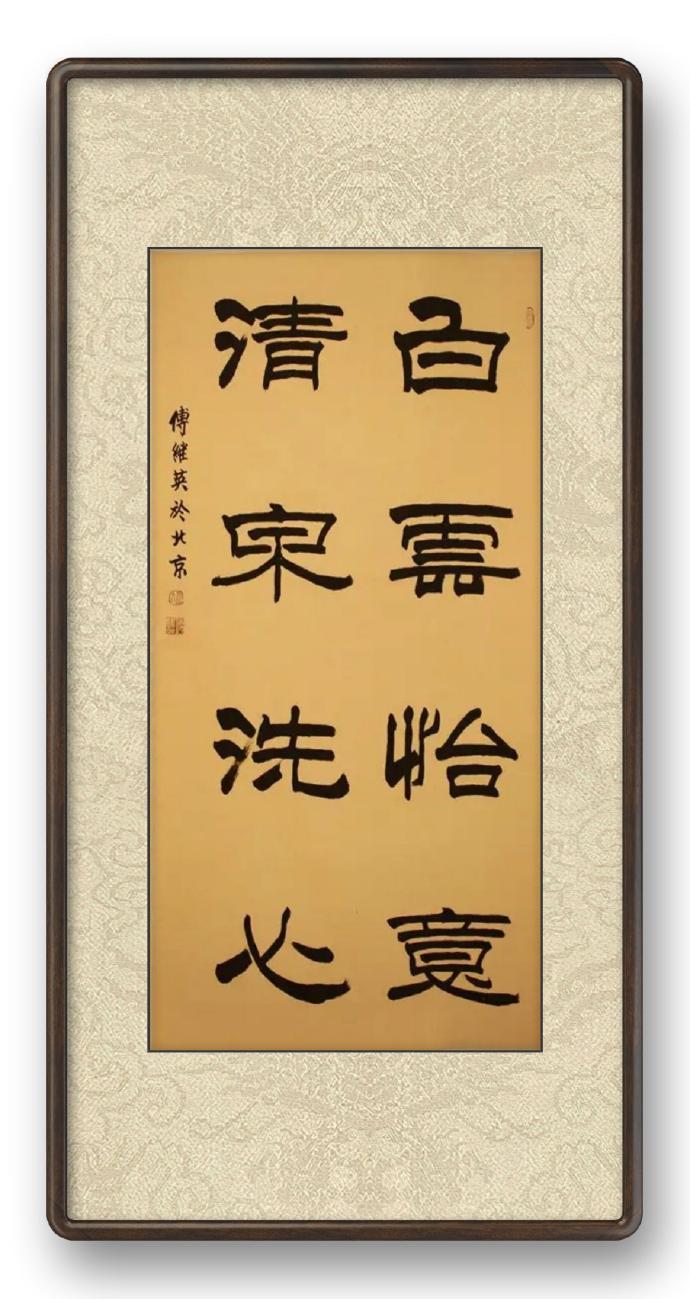 白雲怡意
清泉洗心
傅继英於北京